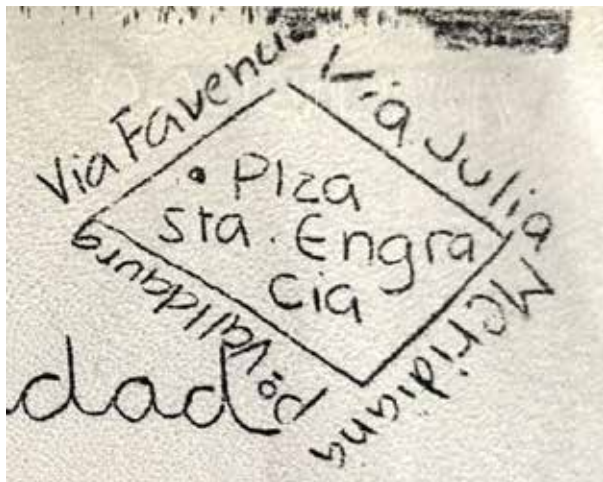 Via Favencia
Via Julia
• Plza
sta. Engra
cia
Meridiana
pº Valldaura
dad